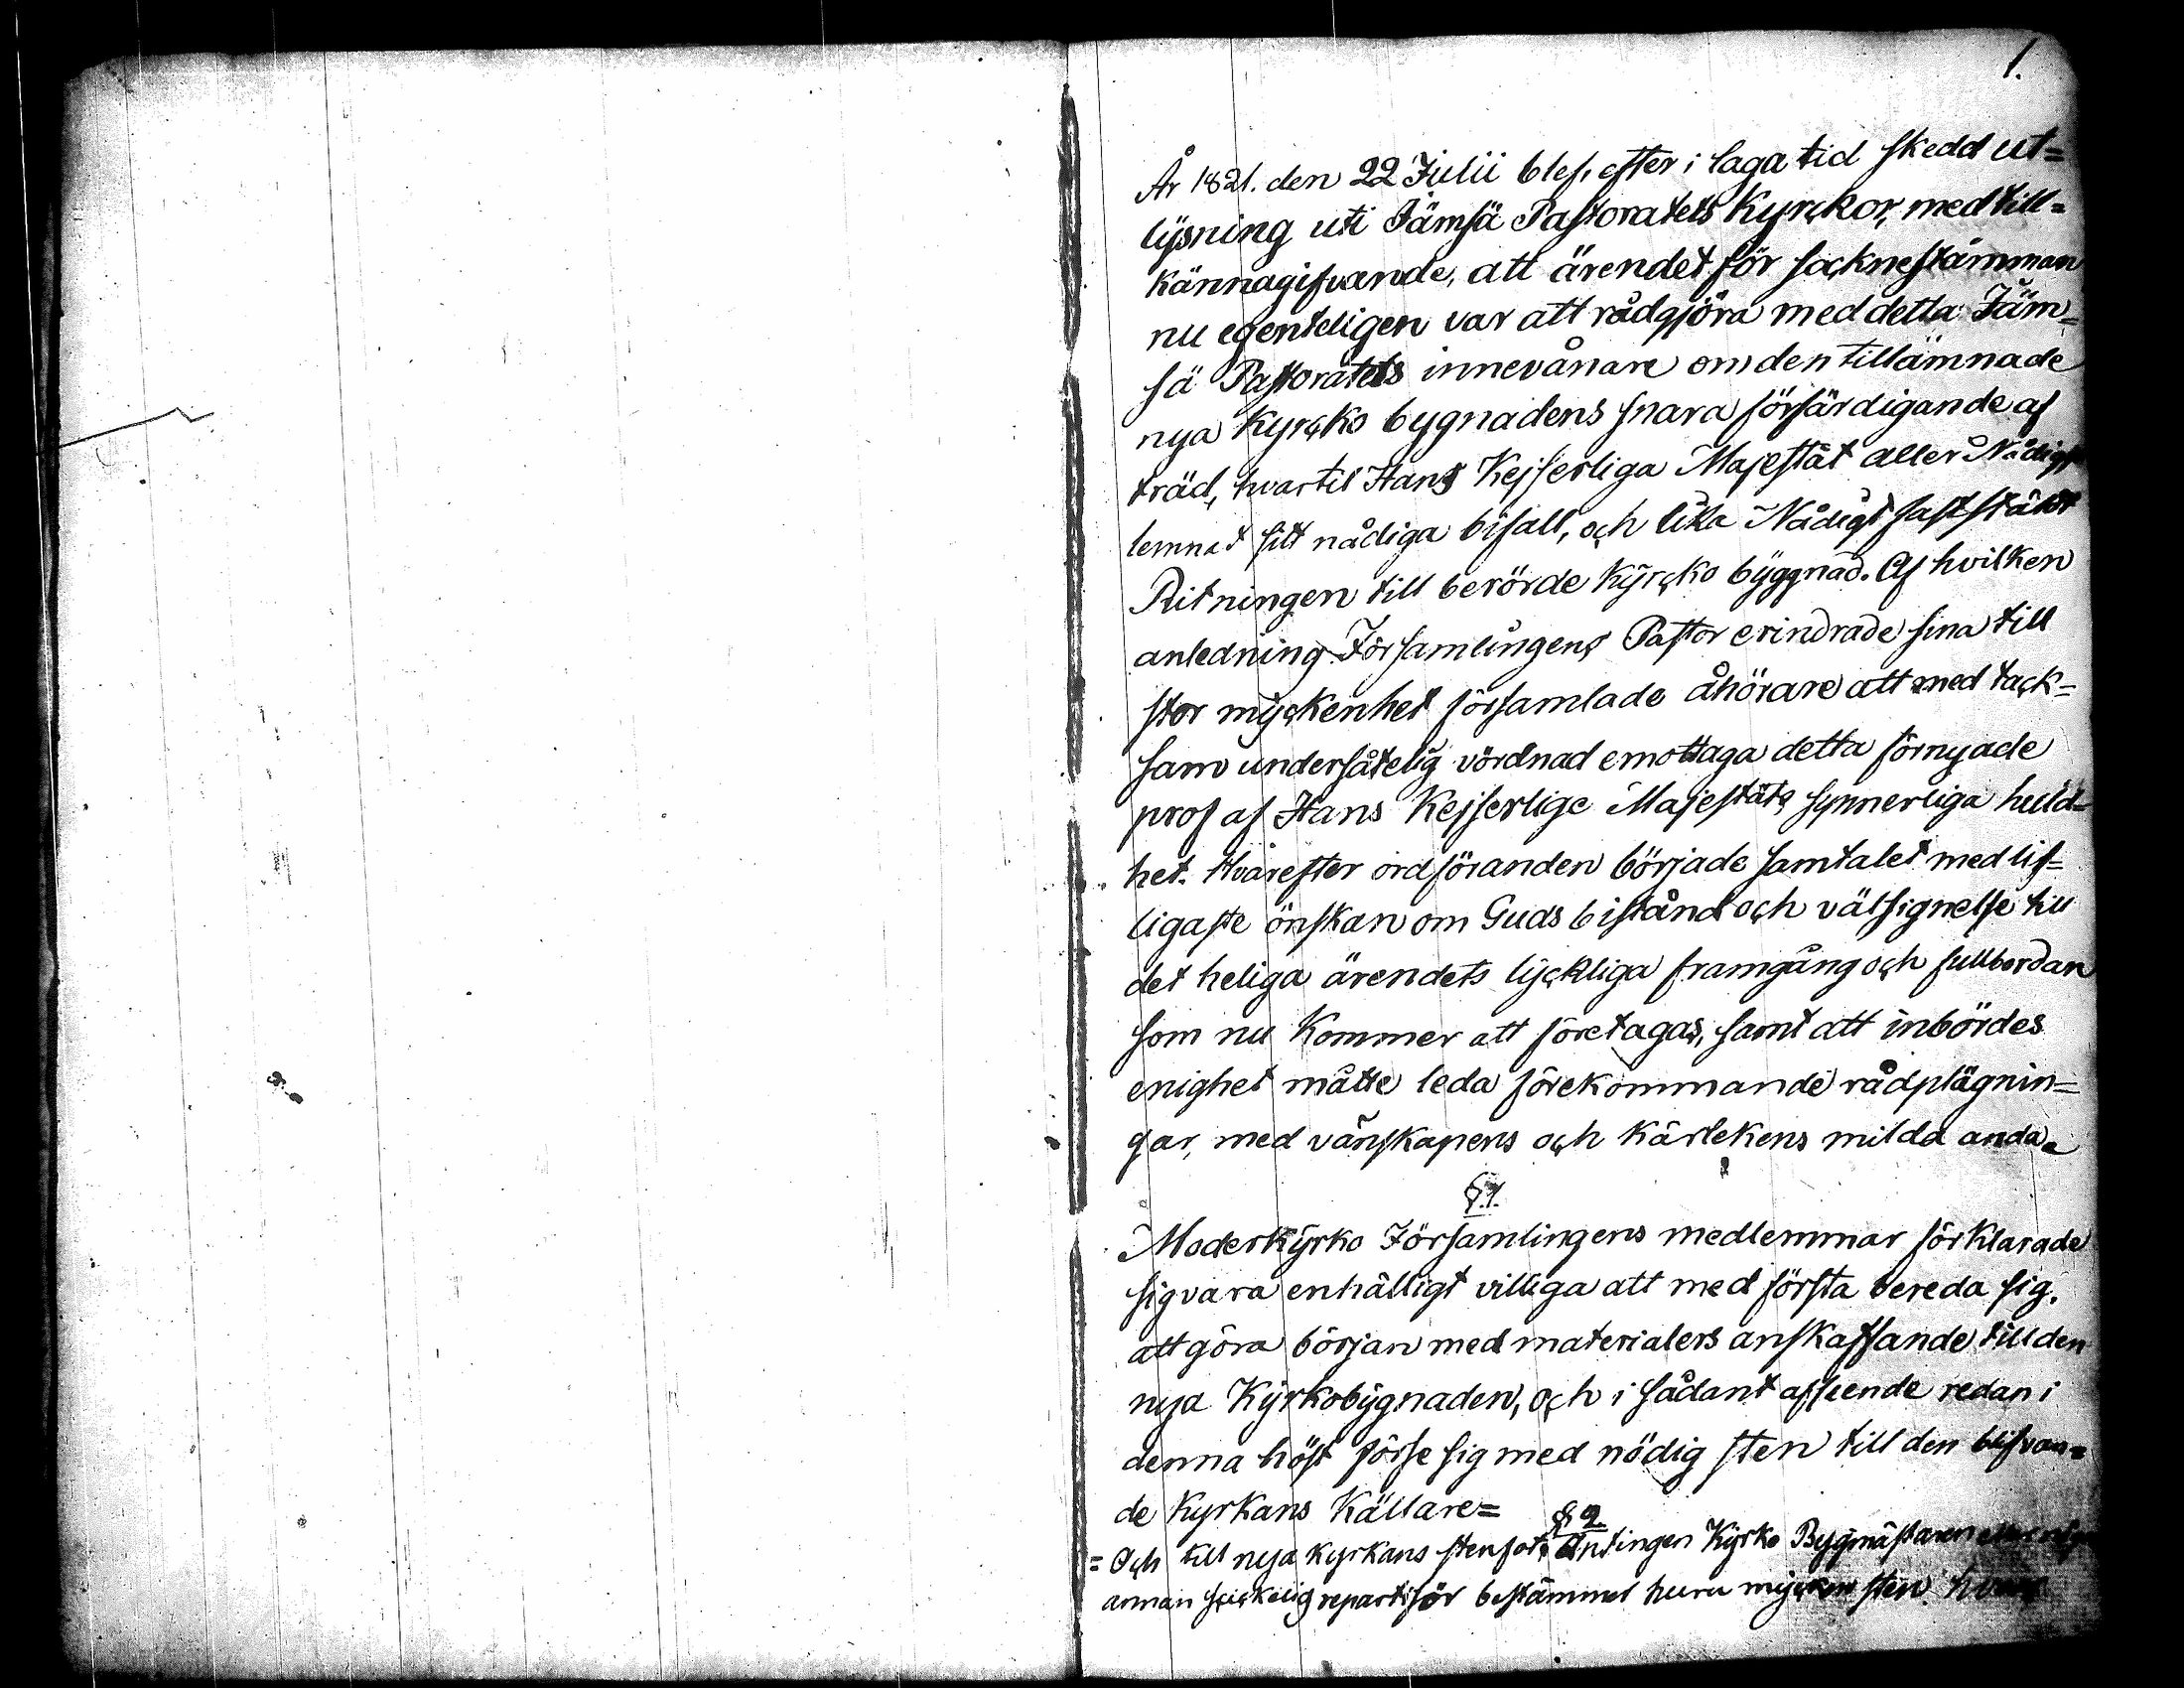 1.
År 1821. den 22 Julii blef, efter i laga tid skedd ut=
lysning uti Jämsä Pastoratets Kyrckor, med till=
kännagifvande, att ärendet för sockneståmman
nu egenteligen var att rådgjöra med detta Jäm=
sä Pastoratets innevånare om den tillämnade
nya Kyrcko bygnadens snara förfärdigande af
träd, hvartil Hans Kejserliga Majestät aller Nådigst
lemnat sitt nådiga bifall, och lika Nådigt fastställt
Ritningen till berörde Kyrcko byggnad. Af hvilken
anledning Församlingens Pastor erindrade sina till
stor myckenhet församlade åhörare att med tack=
sam undersåtelig vördnad emottaga detta förnyade
prof af Hans Kejserlige Majestäts synnerliga huld=
het. Hvarefter ordföranden började samtalet med lif=
ligaste önskan om Guds bistånd och välsignelse till
det heliga ärendets lyckliga framgång och fullbordan
som nu Kommer att företagas, samt att inbördes
enighet måtte leda förekommande rådplägnin=
gar, med vänskapens och kärlekens milda anda.
§.1.
Moderkyrko Församlingens medlemmar förklarade
sig vara enhälligt villiga att med första bereda sig,
att göra början med materialers anskaffande till den
nya Kyrkobygnaden, och i sådant afseende redan i
denna höst förse sig med nödig sten till den blifvan=
de Kyrkans Källare=
§ 2.
= Och till nya kyrkans stenfot. Antingen Kyrko Bygmästaren eller någon
annan skickelig repartitör bestämmet huru mycken sten